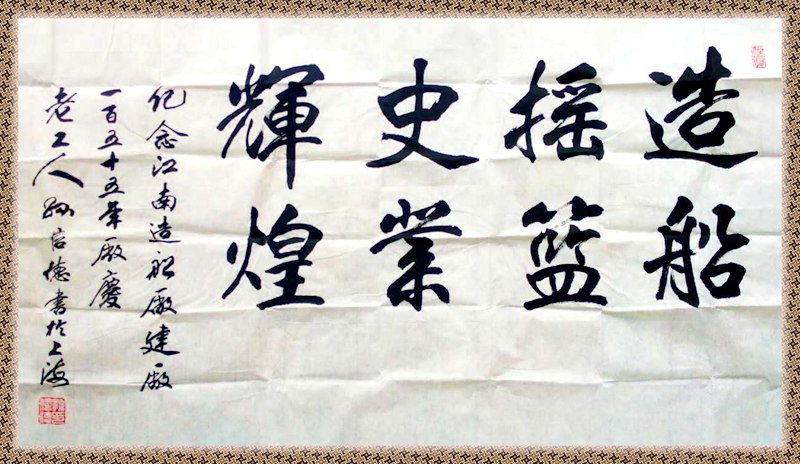 造船
摇篮
史業
輝煌
纪念江南造船厰建厰
一百五十五年厰慶
老工人孙信德書於上海